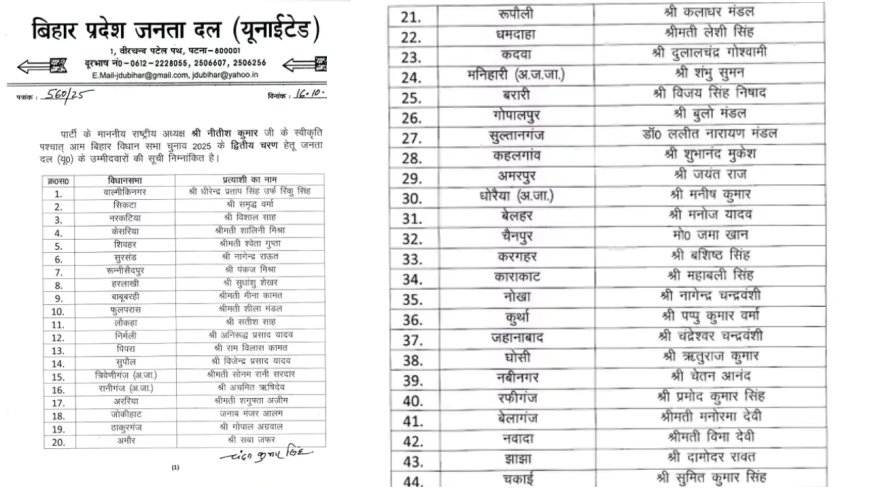 बिहार प्रदेश जनता दल (यूनाईटेड)
1, वीरचन्द पटेल पथ, पटना-800001
दूरभाष नं0-0612-2228055, 2506607, 2506256
E.Mail-jdubihar@gmail.com, jdubihar@yahoo.in
पत्रांक : 560/25 दिनांक : 16.10.
पार्टी के माननीय राष्ट्रीय अध्यक्ष श्री नीतीश कुमार जी के स्वीकृति
पश्चात् आम बिहार विधान सभा चुनाव 2025 के द्वितीय चरण हेतू जनता
दल (यू0) के उम्मीदवारों की सूची निम्नांकित है।
क्र0स0 विधानसभा प्रत्याशी का नाम
1. वाल्मीकिनगर श्री धीरेन्द्र प्रताप सिंह उर्फ रिंकु सिंह
2. सिकटा श्री समृद्ध वर्मा
3. नरकटिया श्री विशाल साह
4. केसरिया श्रीमती शालिनी मिश्रा
5. शिवहर श्रीमती श्वेता गुप्ता
6. सुरसंड श्री नागेन्द्र राऊत
7. रून्नीसैदपुर श्री पंकज मिश्रा
8. हरलाखी श्री सुधांशु शेखर
9. बाबूबरही श्रीमती मीना कामत
10. फुलपरास श्रीमती शीला मंडल
11. लौकहा श्री सतीश साह
12. निर्मली श्री अनिरूद्ध प्रसाद यादव
13. पिपरा श्री राम विलास कामत
14. सुपौल श्री विजेन्द्र प्रसाद यादव
15. त्रिवेणीगंज (अ.जा.) श्रीमती सोनम रानी सरदार
16. रानीगंज (अ.जा.) श्री अचमित ऋषिदेव
17. अररिया श्रीमती शगुफ्ता अजीम
18. जोकीहाट जनाब मंजर आलम
19. ठाकुरगंज श्री गोपाल अग्रवाल
20. अमौर श्री सबा जफर
(1)
21. रूपौली श्री कलाधर मंडल
22. धमदाहा श्रीमती लेशी सिंह
23. कदवा श्री दुलालचंद्र गोश्वामी
24. मनिहारी (अ.ज.जा.) श्री शंभु सुमन
25. बरारी श्री विजय सिंह निषाद
26. गोपालपुर श्री बुलो मंडल
27. सुल्तानगंज डॉ0 ललीत नारायण मंडल
28. कहलगांव श्री शुभानंद मुकेश
29. अमरपुर श्री जयंत राज
30. धोरैया (अ.जा.) श्री मनीष कुमार
31. बेलहर श्री मनोज यादव
32. चैनपुर मो0 जमा खान
33. करगहर श्री बशिष्ठ सिंह
34. काराकाट श्री महाबली सिंह
35. नोखा श्री नागेन्द्र चन्द्रवंशी
36. कुर्था श्री पप्पु कुमार वर्मा
37. जहानाबाद श्री चंद्रेश्वर चन्द्रवंशी
38. घोसी श्री ऋतुराज कुमार
39. नबीनगर श्री चेतन आनंद
40. रफीगंज श्री प्रमोद कुमार सिंह
41. बेलागंज श्रीमती मनोरमा देवी
42. नवादा श्रीमती विभा देवी
43. झाझा श्री दामोदर रावत
44. चकाई श्री सुमित कुमार सिंह